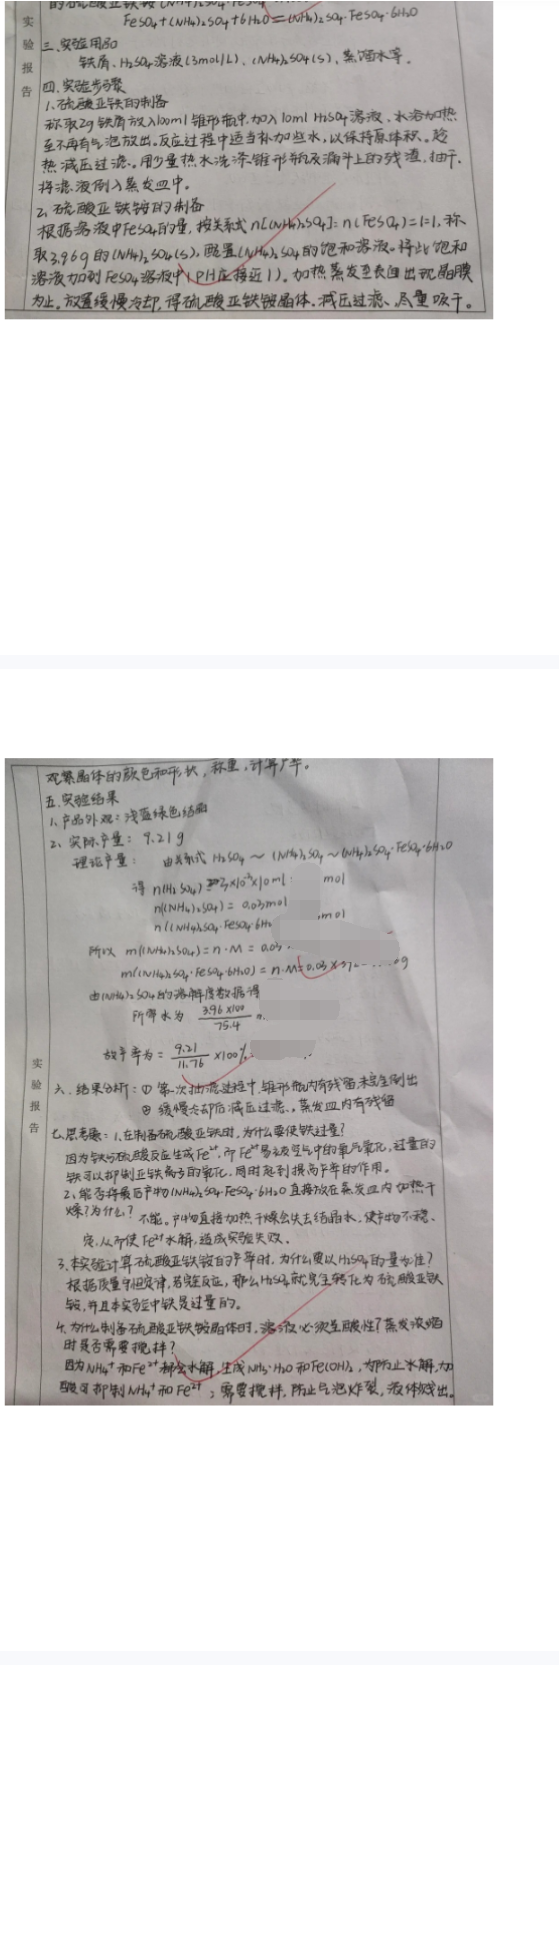 FeSO4+(NH4)2SO4+6H2O=(NH4)2SO4·FeSO4·6H2O
三、实验用品
铁屑、H2SO4溶液(3mol/L)、(NH4)2SO4(s)、蒸馏水等。
四、实验步骤
1、硫酸亚铁的制备
称取2g铁屑放入100ml锥形瓶中,加入10ml H2SO4溶液、水浴加热
至不再有气泡放出。反应过程中适当补加些水,以保持原体积。趁
热减压过滤。用少量热水洗涤锥形瓶及漏斗上的残渣,抽干。
将滤液倒入蒸发皿中。
2、硫酸亚铁铵的制备
根据溶液中FeSO4的量,按关系式n[(NH4)2SO4]:n(FeSO4)=1:1,称
取3.96g的(NH4)2SO4(s),配置(NH4)2SO4的饱和溶液。将此饱和
溶液加到FeSO4溶液中(PH应接近1)。加热蒸发至表面出现晶膜
为止。放置缓慢冷却,得硫酸亚铁铵晶体。减压过滤、尽量吸干。
实验报告
观察晶体的颜色和形状,称重,计算产率。
五、实验结果
1、产品外观:浅蓝绿色结晶
2、实际产量:9.21g
理论产量: 由关系式 H2SO4~(NH4)2SO4~(NH4)2SO4·FeSO4·6H2O
得 n(H2SO4)=3×10⁻³×10ml mol
n((NH4)2SO4)=0.03mol
n((NH4)2SO4·FeSO4·6H2 mol
所以 m((NH4)2SO4)=n·M=0.03
m((NH4)2SO4·FeSO4·6H2O)=n·M=0.03× g
由(NH4)2SO4的溶解度数据得
所需水为 3.96×100/75.4
故产率为=9.21/11.76×100%
六、结果分析:① 第一次抽滤过程中,锥形瓶内有残留,未完全倒出
② 缓慢冷却后减压过滤,蒸发皿内有残留
七、思考题:1、在制备硫酸亚铁时,为什么要使铁过量?
因为铁与硫酸反应生成Fe²⁺,而Fe²⁺易被空气中的氧气氧化,过量的
铁可以抑制亚铁离子的氧化,同时起到提高产率的作用。
2、能否将最后产物(NH4)2SO4·FeSO4·6H2O直接放在蒸发皿内加热干
燥?为什么? 不能。产物直接加热干燥会失去结晶水,使产物不稳
定,从而使Fe²⁺水解,造成实验失败。
3、本实验计算硫酸亚铁铵的产率时,为什么要以H2SO4的量为准?
根据质量守恒定律,若实验反应,那么H2SO4就完全转化为硫酸亚铁
铵,并且本实验中铁是过量的。
4、为什么制备硫酸亚铁铵晶体时,溶液必须呈酸性?蒸发浓缩
时是否需要搅拌?
因为NH4⁺和Fe²⁺都会水解,生成NH3·H2O和Fe(OH)2,为防止水解,加
酸可抑制NH4⁺和Fe²⁺;需要搅拌,防止气泡炸裂,液体溅出。
实验报告